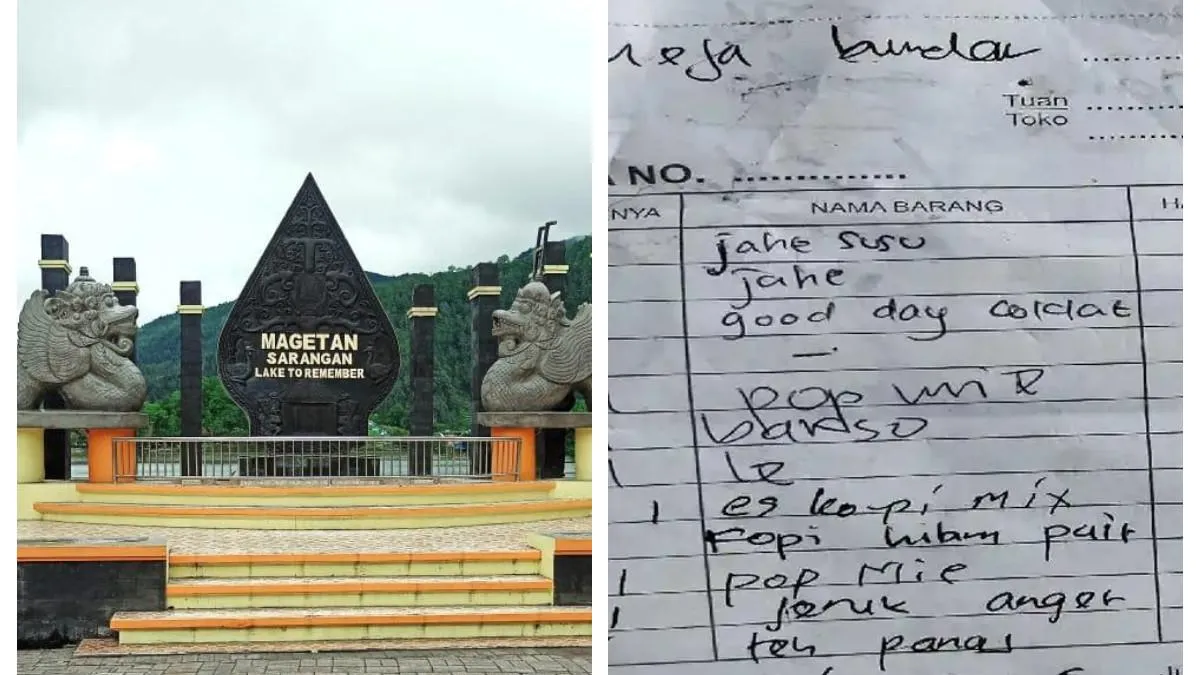 MAGETAN
SARANGAN
LAKE TO REMEMBER
meja bundar
Tuan
Toko
NO.
NYA NAMA BARANG HA
jahe susu
jahe
good day coldat
pop mie
bakso
le
1 es kopi mix
Kopi hitam pait
1 pop Mie
1 jeruk anger
teh panas